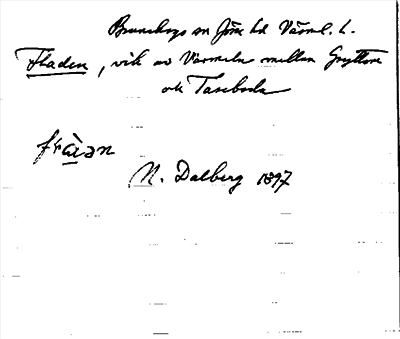 Brunskogs sn Jöse hd Värml. l.
Fladen, vik av Värmeln mellan Gryttom
och Taseboda
fràan
N. Dalberg 1897